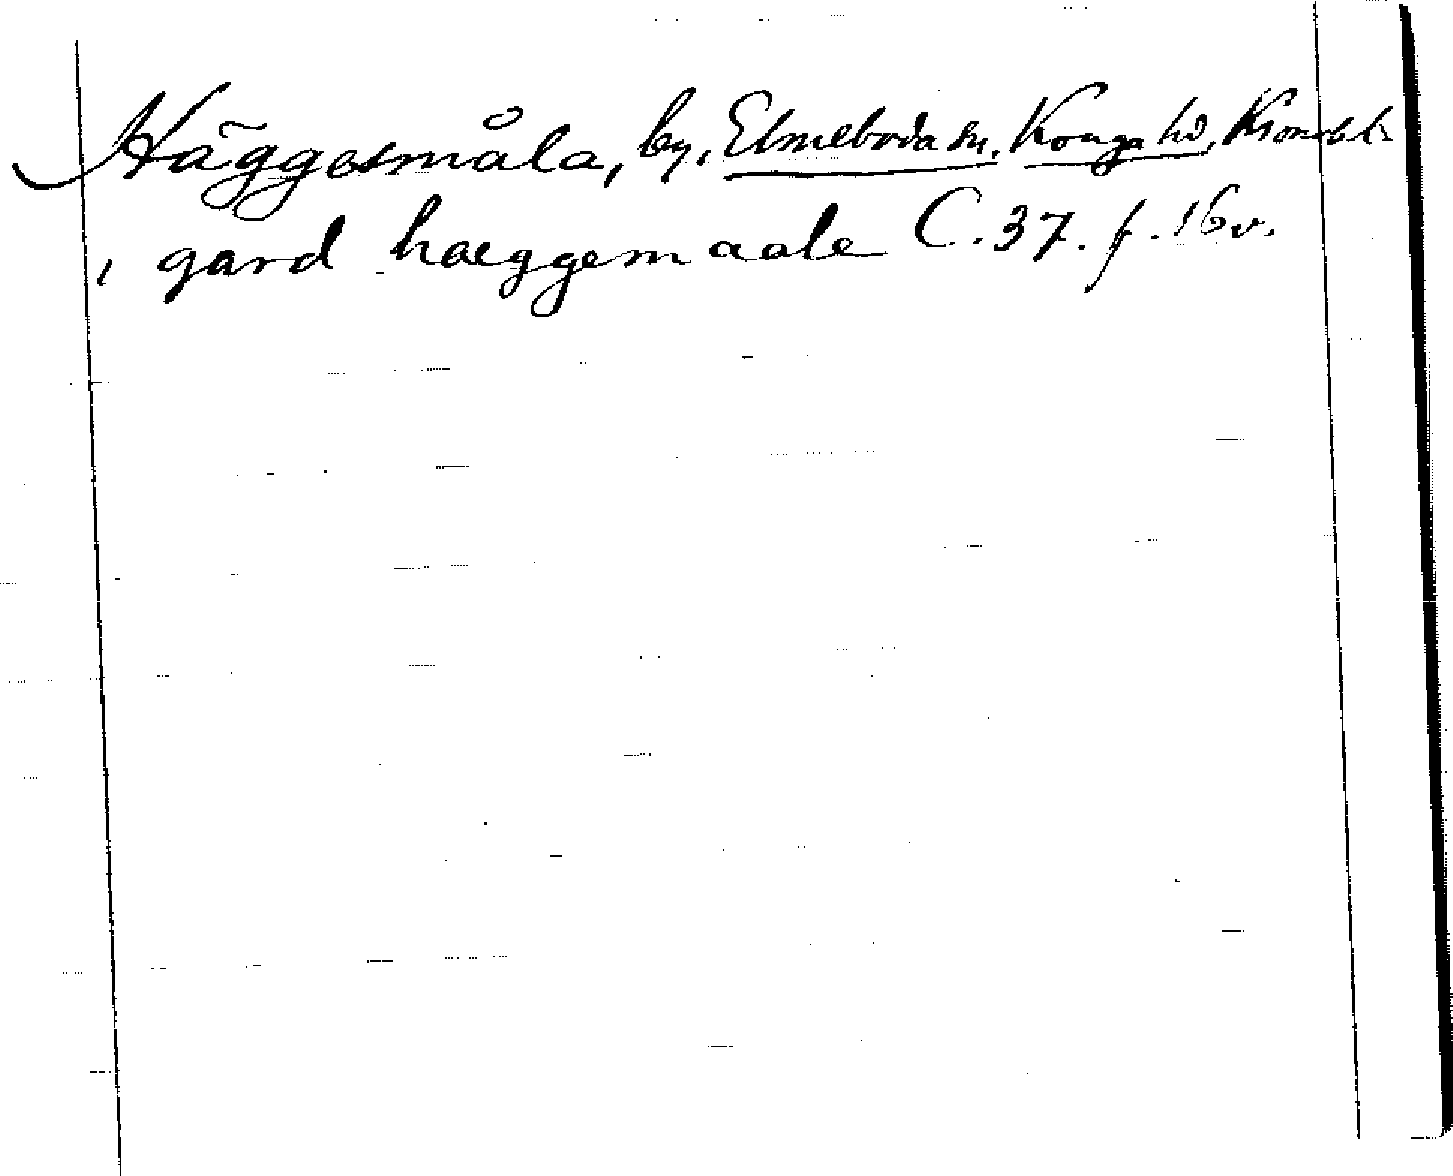 Häggesmåla, by, Elmeboda sn, Konga hd, Kronob. l.
1 gard haeggemaale C. 37. f. 16 v.